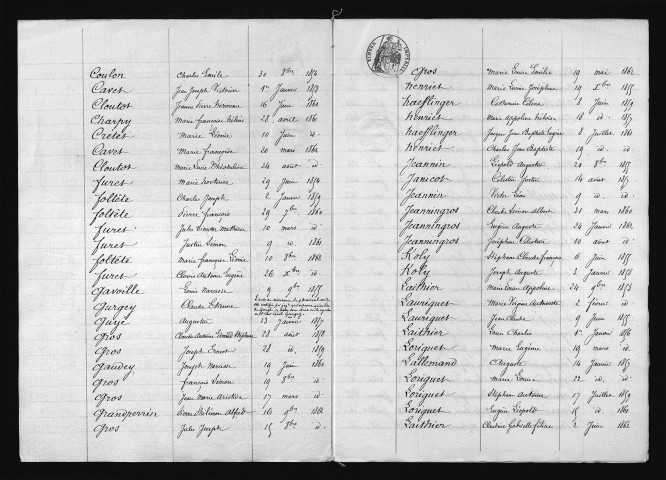 Coulon Charles Emile 30 8bre 1854
Cavet Jean Joseph Victoire 1er Janvier 1853
Cloutot Jeanne Pierre 16 Juin 1860
Charpy Marie Françoise 28 avril 1861
Crétet Marie Léonie 10 Juin id
Cavet Marie Françoise 20 mars 1862
Cloutot Marie Lucie 24 aout id
Furet Marie Hortense 29 Juin 1854
Foltête Charles Joseph 2 Janvier 1859
Foltête Pierre François 29 7bre 1860
Furet Jules 10 mars id
Furet Justin Simon 9 id 1861
Foltête Marie Françoise Léonie 10 8bre 1862
Furet Clovis Antoine Eugène 26 Xbre id
Gavoille Louis Narcisse 9 9bre 1855
Gurgey Claude Etienne
Guye Augustin 13 Janvier 1857
Gros 28 aout 1858
Gros Joseph Ernest 28 id 1859
Gaudey Joseph Narcisse 19 Juin 1860
Gros François Simon 19 8bre id
Gros Jean Marie Aristide 17 mars id
Grandperrin Pierre Philimon Alfred 16 9bre 1862
Gros Jules Joseph 15 8bre id
TIMBRE IMPERIAL
Gros Marie Louise Emilie 19 mai 1862
Henriet Marie Lucine Joséphine 19 Xbre 1855
Haeflinger Catherine Célina 8 Juin 1859
Henriet Marie Appoline 18 id 1857
Haeflinger Jacques Jean Baptiste Eugène 8 Juillet 1861
Henriet Charles Jean Baptiste 19 id id
Jeannin Léopold Augustin 21 8bre 1855
Janicot Célestin Justin 14 aout 1857
Jeannin Victor Léon 9 id id
Jeanningros Claude Simon Albert 31 mars 1860
Jeanningros Eugène Auguste 24 Janvier 1862
Jeanningros Joséphine Célestine 10 aout id
Koly Stéphane Claude François 6 Juin 1855
Koly Joseph Auguste 3 Janvier 1858
Laithier Marie Louise Appoline 24 9bre 1853
Lauriguet Marie Virginie Antoinette 2 février id
Lauriguet Jean Claude 9 Juin 1855
Laithier Louis Charles 1er Janvier 1856
Loriguet Marie Eugénie 19 mars id
Lallemand Auguste 14 Janvier 1857
Louguet Marie Louise 22 id id
Louguet Stéphane Antoine 17 Juillet 1859
Louguet Eugène Léopold 15 id 1861
Laithier Claudine Gabrielle Céline 2 Juin 1862